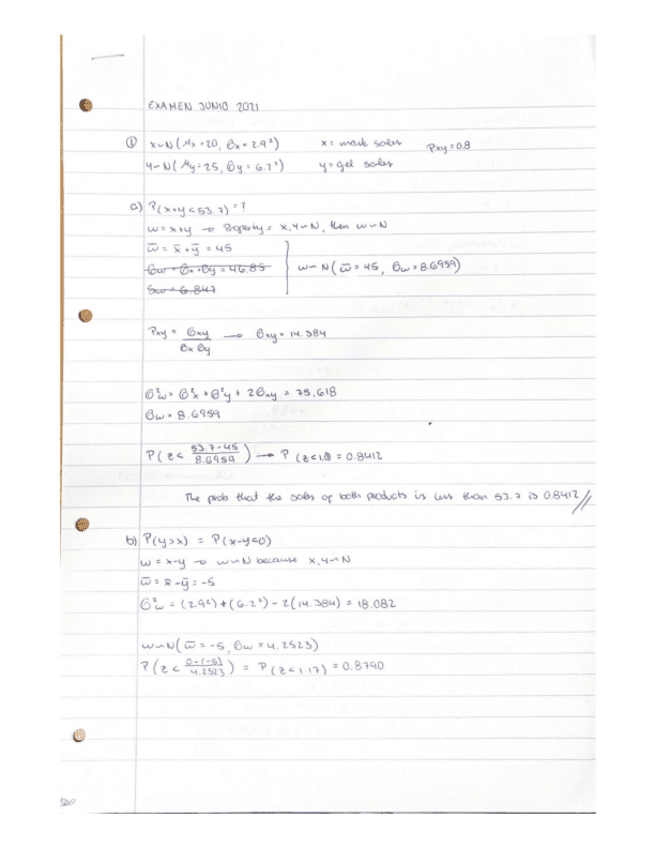 EXAMEN JUNIO 2021
① x~N(μx=20, σx=2.9²) x= mask sales ρxy=0.8
y~N(μy=25, σy=6.2²) y= gel sales
a) P(x+y<53.7)=?
w=x+y → Property: x,y~N, then w~N
w̄ = x̄+ȳ = 45
σw = σx+σy = 46.85
w~N(w̄=45, σw=8.6959)
Sw=6.847
ρxy = σxy / σx σy → σxy=14.384
σ²w = σ²x + σ²y + 2σxy = 75,618
σw = 8.6959
P(z < 53.7-45 / 8.6959) → P(z<1.0) = 0.8412
The prob that the sales of both products is less than 53.7 is 0.8412 //
b) P(y>x) = P(x-y<0)
w=x-y → w~N because x,y~N
w̄ = x̄-ȳ = -5
σ²w = (2.9²)+(6.2²)-2(14.384) = 18.082
w~N(w̄=-5, σw=4.2523)
P(z < 0-(-5) / 4.2523) = P(z<1.17) = 0.8790